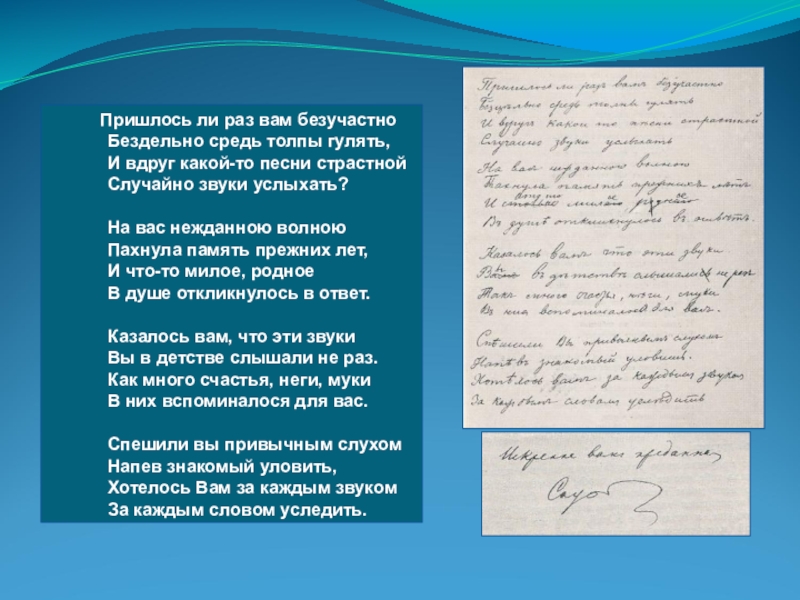 Пришлось ли раз вам безучастно
Бездельно средь толпы гулять,
И вдруг какой-то песни страстной
Случайно звуки услыхать?
На вас нежданною волною
Пахнула память прежних лет,
И что-то милое, родное
В душе откликнулось в ответ.
Казалось вам, что эти звуки
Вы в детстве слышали не раз.
Как много счастья, неги, муки
В них вспоминалося для вас.
Спешили вы привычным слухом
Напев знакомый уловить,
Хотелось Вам за каждым звуком
За каждым словом уследить.
Пришлось ли разъ вамъ безучастно
Бездѣльно средь толпы гулять
И вдругъ какой то пѣсни страстной
Случайно звуки услыхать
На васъ нежданною волною
Пахнула память прежнихъ лѣтъ
И что то милое родное
Въ душѣ откликнулось въ отвѣтъ.
Казалось вамъ что эти звуки
Вы въ дѣтствѣ слышали не разъ
Такъ много счастья, нѣги, муки
Въ нихъ вспоминалося для васъ.
Спѣшили Вы привычнымъ слухомъ
Напѣвъ знакомый уловить.
Хотѣлось вамъ за каждымъ звукомъ
За каждымъ словомъ услѣдить
Искренно вамъ преданная